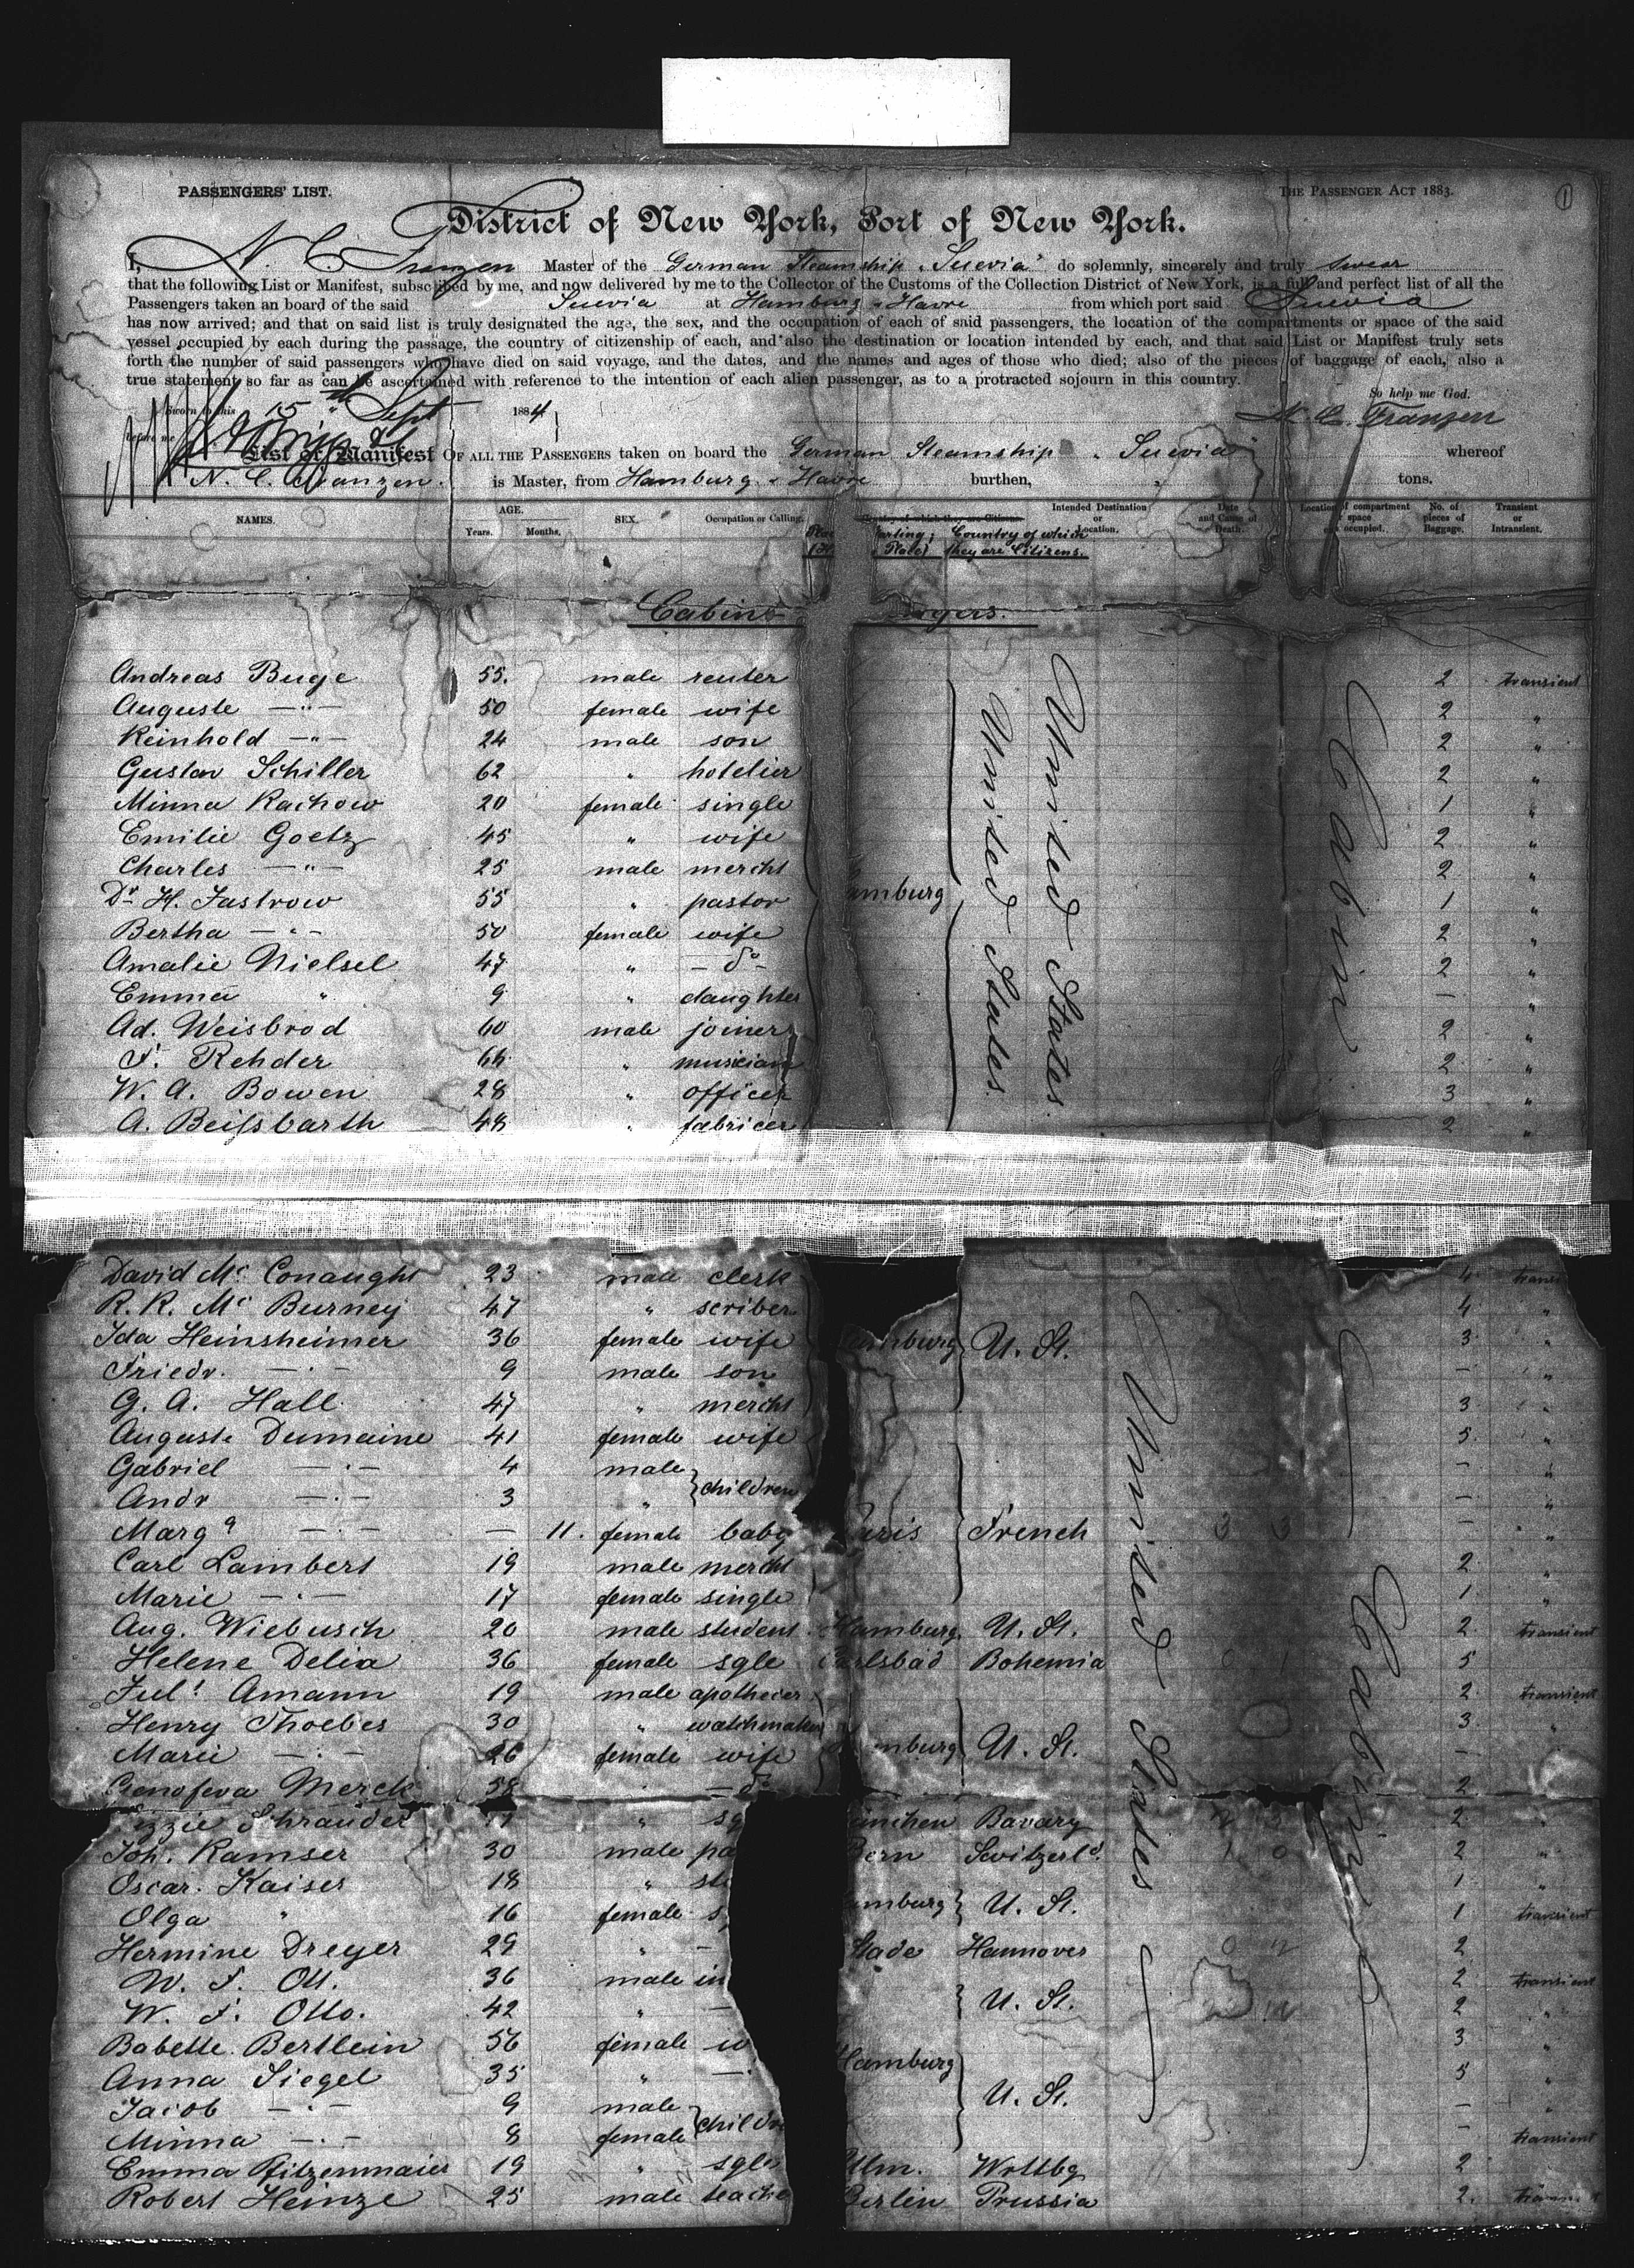 PASSENGERS' LIST.
THE PASSENGER ACT 1883.
1
District of New York, Port of New York.
I, N. C. Franzen Master of the German Steamship "Suevia" do solemnly, sincerely and truly swear
that the following List or Manifest, subscribed by me, and now delivered by me to the Collector of the Customs of the Collection District of New York, is a full and perfect list of all the
Passengers taken an board of the said Suevia at Hamburg & Havre from which port said Suevia
has now arrived; and that on said list is truly designated the age, the sex, and the occupation of each of said passengers, the location of the compartments or space of the said
vessel occupied by each during the passage, the country of citizenship of each, and also the destination or location intended by each, and that said List or Manifest truly sets
forth the number of said passengers who have died on said voyage, and the dates, and the names and ages of those who died; also of the pieces of baggage of each, also a
true statement so far as can be ascertained with reference to the intention of each alien passenger, as to a protracted sojourn in this country.
So help me God.
Sworn to this 15th Sept 1884
N. C. Franzen
before me
List or Manifest OF ALL THE PASSENGERS taken on board the German Steamship "Suevia" whereof
N. C. Franzen. is Master, from Hamburg & Havre burthen, " tons.
NAMES. AGE. Years. Months. SEX. Occupation or Calling. Country of which they are Citizens. Intended Destination or Location. Date and Cause of Death. Location of compartment or space occupied. No. of pieces of Baggage. Transient or Intransient.
starting; Country of which
Place) they are Citizens.
Cabin
Andreas Buge 55. male renter 2 transient
Auguste —"— 50 female wife 2 "
Reinhold —"— 24 male son 2 "
Gustav Schiller 62 " hotelier 2 "
Minna Rachow 20 female single 1 "
Emilie Goetz 45 " wife 2 "
Charles —"— 25 male mercht 2 "
Dr H. Jastrow 55 " pastor 1 "
Bertha —"— 50 female wife 2 "
Amalie Nielsel 47 " — do — 2 "
Emma " 9 " daughter — "
Ad. Weisbrod 60 male joiner 2 "
F. Rehder 64 " musician 2 "
W. A. Bowen 28 " officer 3 "
A. Beissbarth 48 " fabricer 2 "
amburg United States United States Cabin
David Mc Conaught 23 male clerk 4
R. R. Mc Burney 47 " scriber 4 "
Ida Heinsheimer 36 female wife amburg U. St. 3 "
Friedr. —"— 9 male son — "
G. A. Hall 47 " mercht 3 "
Auguste Dumaine 41 female wife 5 "
Gabriel —"— 4 male children — "
Andr —"— 3 " — "
Marga —"— — 11. female baby Paris French — "
Carl Lambert 19 male mercht 2 "
Marie —"— 17 female single 1 "
Aug. Wiebusch 20 male student Hamburg U. St. 2 transient
Helene Delia 36 female sgle Carlsbad Bohemia 5
Jul. Amann 19 male apothecer 2 transient
Henry Thoebes 30 " watchmaker 3 "
Marie —"— 26 female wife amburg U. St. — "
Genofeva Merck 58 " — do 2
izzie Schrauder " München Bavary 2 "
Joh. Ramser 30 male Bern Switzerld. 2 "
Oscar. Kaiser 18 " 1 "
Olga " 16 female amburg U. St. 1 transient
Hermine Dreyer 29 " — Stade Hannover 2
W. F. Ott. 36 male 2 transient
W. F. Otto. 42 " — U. St. 2 "
Babette Bertlein 56 female 3 "
Anna Siegel 35 " — Hamburg 5 "
Jacob —"— 9 male U. St. — "
Minna —"— 8 female — transient
Emma Pfitzenmaier 19 " sgle Ulm. Wrttbg 2
Robert Heinze 25 male Berlin Prussia 2.
United States
Cabin